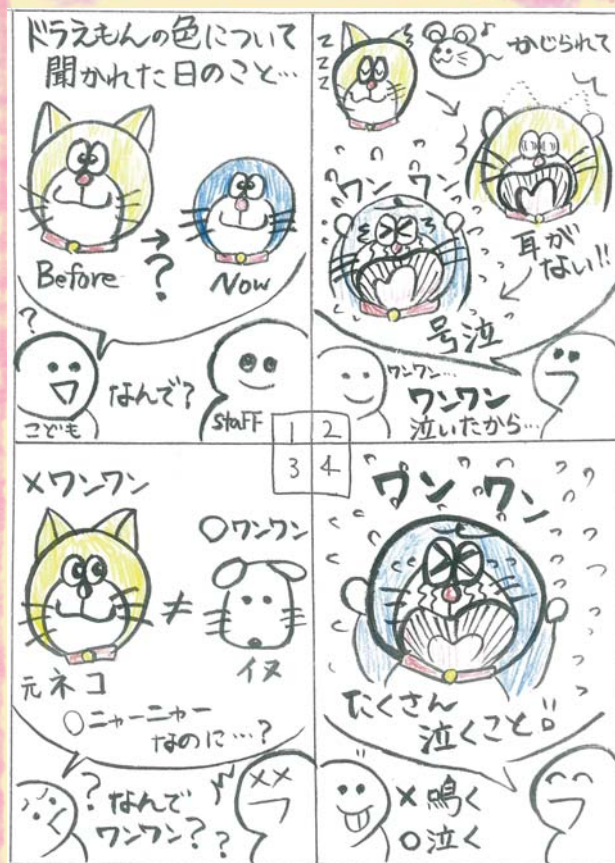 ドラえもんの色について
聞かれた日のこと…
Before
→
?
Now
?
なんで?
こども
staff
zzz
♪
かじられて
ワンワン
耳が
ない!!
号泣
ワンワン…
ワンワン
泣いたから…
1 2
3 4
×ワンワン
○ワンワン
≠
元ネコ
イヌ
○ニャーニャー
なのに…?
?なんで
ワンワン??
ワンワン
たくさん
泣くこと!!
×鳴く
○泣く